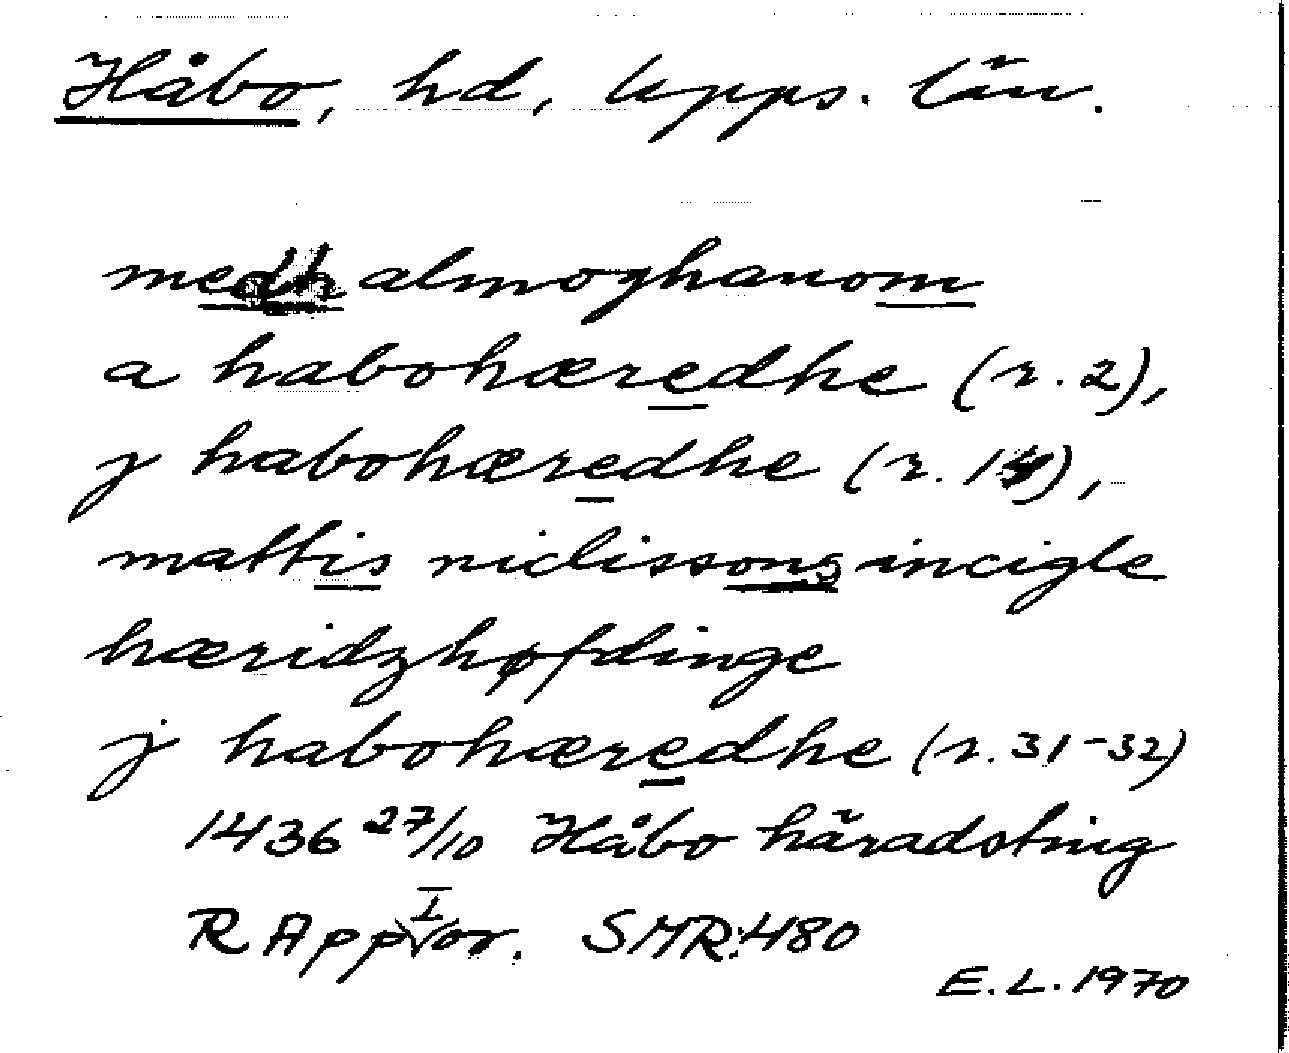 Håbo, hd, Upps. län.
medh almoghanom
a habohæredhe (r. 2),
j habohæredhe (r. 14),
mattis niclissons incigle
hæridzhøfdinge
j habohæredhe (r. 31-32)
1436 27/10 Håbo häradsting
RApp I or. SMR: 480
E.L. 1970